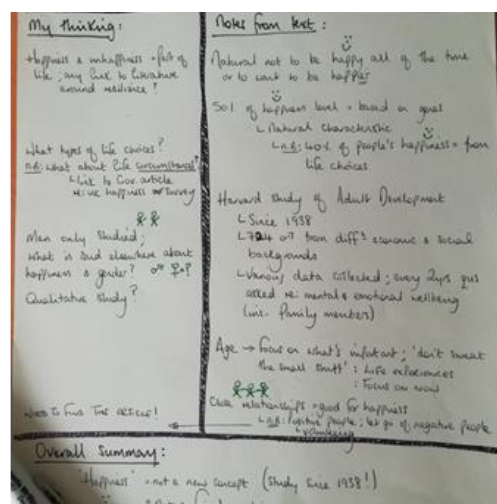 My thinking:
Happiness & unhappiness = part of
life; any link to literature
around resilience?
What types of life choices?
n.B: what about life circumstances?
↳ Link to Gov. article
re: UK happiness survey
Men only studied;
what is said elsewhere about
happiness & gender? ♂ ♀?
Qualitative study?
Need to find this article!
Notes from text:
Natural not to be happy all of the time
or to want to be happier
50% of happiness level = based on genes
↳ Natural characteristic
↳ n.B: 40% of people's happiness = from
life choices
Harvard study of Adult Development
↳ Since 1938
↳ 724 ♂ from diff't economic & social
backgrounds
↳ Various data collected; every 2yrs qus
asked re: mental & emotional wellbeing
(inc. family members)
Age → Focus on what's important; 'don't sweat
the small stuff' : Life experiences
: Focus on now
Close relationships = good for happiness
↳ n.B: Positive people; let go of negative people
Overall Summary:
'Happiness' = not a new concept (study since 1938!)